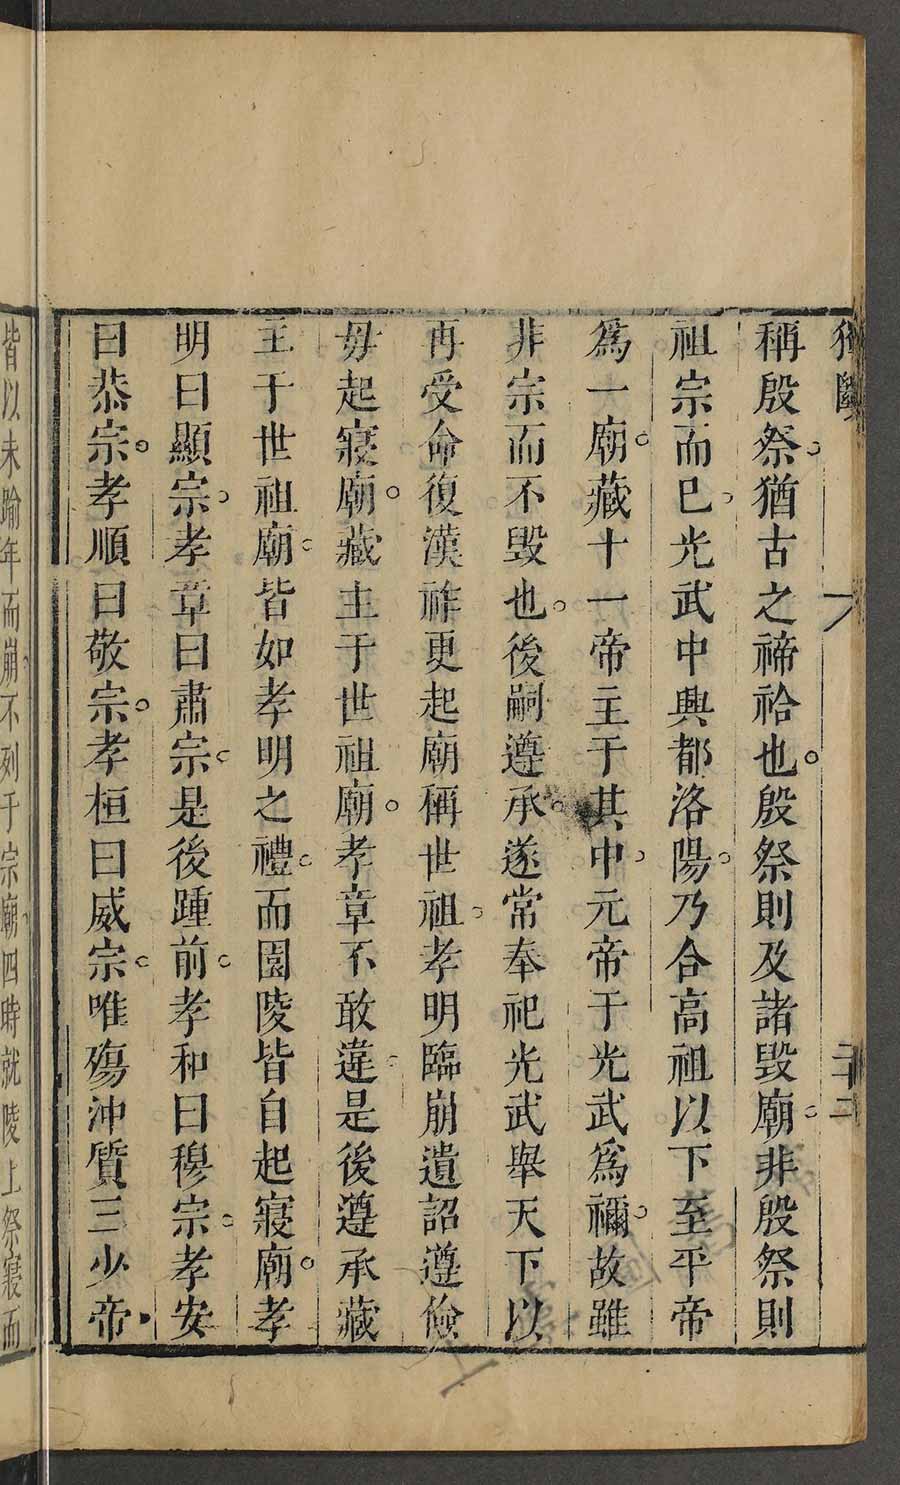 獨斷 下 二十二
稱殷祭。猶古之禘祫也。殷祭則及諸毀廟。非殷祭則
祖宗而已。光武中興都洛陽。乃合高祖以下至平帝
爲一廟。藏十一帝主于其中。元帝于光武爲禰。故雖
非宗而不毀也。後嗣遵承。遂常奉祀光武舉天下以
再受命復漢祚更起廟稱世祖。孝明臨崩遺詔遵儉
毋起寢廟。藏主于世祖廟。孝章不敢違。是後遵承藏
主于世祖廟。皆如孝明之禮。而園陵皆自起寢廟。孝
明曰顯宗。孝章曰肅宗。是後踵前。孝和曰穆宗。孝安
曰恭宗。孝順曰敬宗。孝桓曰威宗。唯殤沖質三少帝
皆以未踰年而崩。不列于宗廟。四時就陵上祭寢而